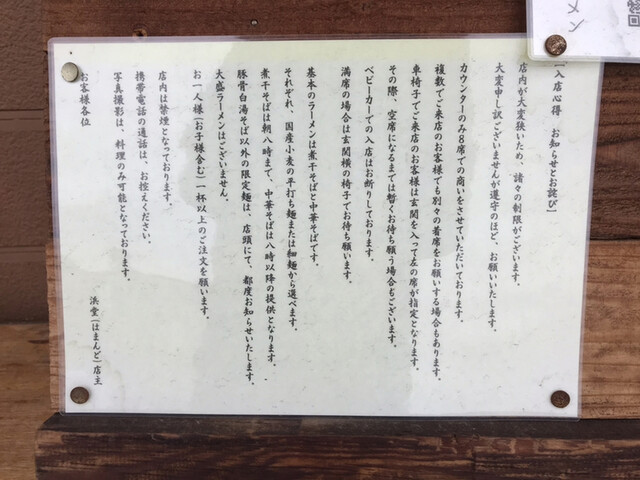 【入店心得　お知らせとお詫び】
店内が大変狭いため、諸々の制限がございます。
大変申し訳ございませんが遵守のほど、お願いいたします。
カウンターのみ８席での商いをさせていただいております。
複数でご来店のお客様でも別々の着席をお願いする場合もあります。
車椅子でご来店のお客様は玄関を入って左の席が指定となります。
その際、空席になるまでは暫くお待ち願う場合もございます。
ベビーカーでの入店はお断りしております。
満席の場合は玄関横の椅子でお待ち願います。
基本のラーメンは煮干そばと中華そばです。
それぞれ、国産小麦の平打ち麺または細麺から選べます。
煮干そばは朝八時まで、中華そばは八時以降の提供となります。
豚骨白湯そば以外の限定麺は、店頭にて、都度お知らせいたします。
大盛ラーメンはございません。
お一人様（お子様含む）一杯以上のご注文を願います。
店内は禁煙となっております。
携帯電話の通話は、お控えください。
写真撮影は、料理のみ可能となっております。
お客様各位
浜堂（はまんど）店主